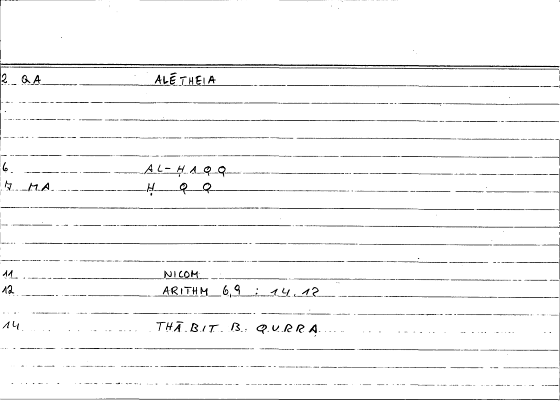 2 QA ALĒTHEIA
6 AL-ḤAQQ
7 MA Ḥ Q Q
11 NICOM
12 ARITHM 6,9 : 14,12
14 THĀBIT B. QURRA